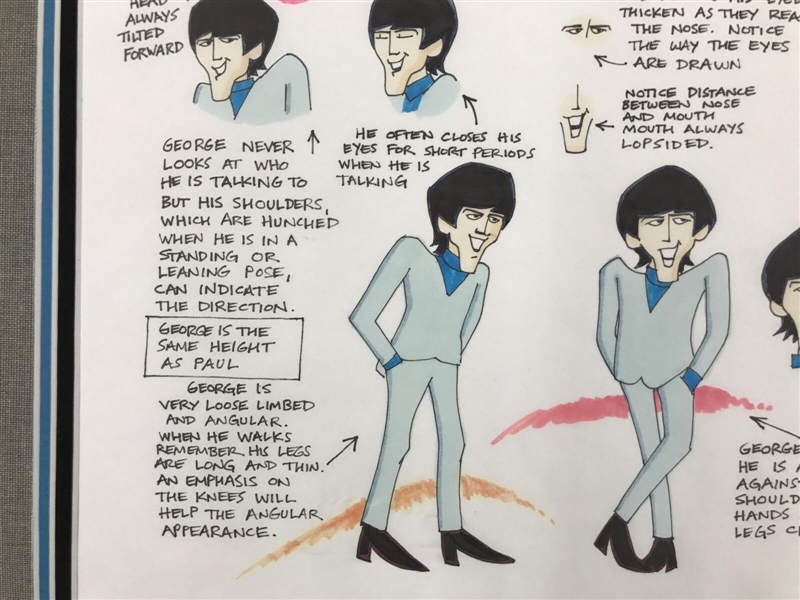 HEAD
ALWAYS
TILTED
FORWARD
GEORGE NEVER
LOOKS AT WHO
HE IS TALKING TO
BUT HIS SHOULDERS,
WHICH ARE HUNCHED
WHEN HE IS IN A
STANDING OR
LEANING POSE,
CAN INDICATE
THE DIRECTION.
GEORGE IS THE
SAME HEIGHT
AS PAUL
GEORGE IS
VERY LOOSE LIMBED
AND ANGULAR.
WHEN HE WALKS
REMEMBER HIS LEGS
ARE LONG AND THIN.
AN EMPHASIS ON
THE KNEES WILL
HELP THE ANGULAR
APPEARANCE.
HE OFTEN CLOSES HIS
EYES FOR SHORT PERIODS
WHEN HE IS
TALKING
THICKEN AS THEY
THE NOSE. NOTICE
THE WAY THE EYES
ARE DRAWN
NOTICE DISTANCE
BETWEEN NOSE
AND MOUTH
MOUTH ALWAYS
LOPSIDED.
GEORGE
HE IS
AGAINS
SHOULD
HANDS
LEGS C